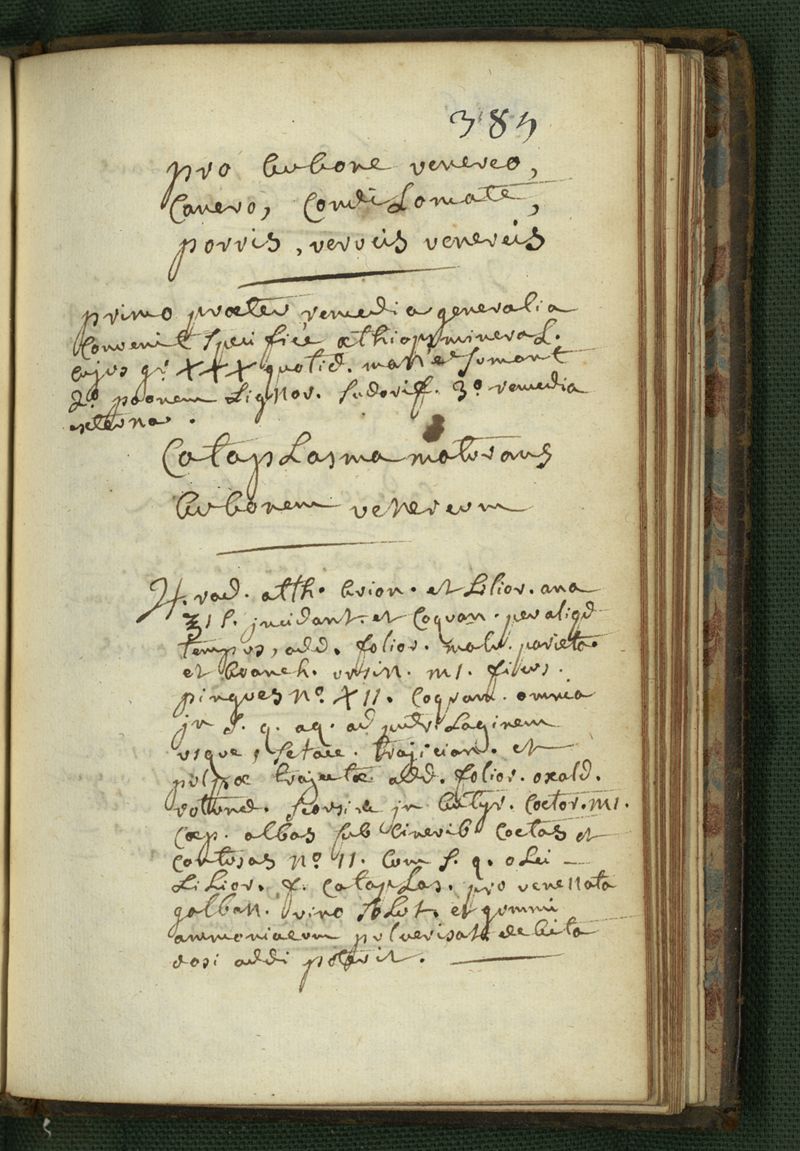 385
pro bubone venereo,
Cancro, Condilomate,
porris, verrucis venereis
primo præter remedia generalia
Convenit specifice æthiops mineral.
cujus gr. XXX quotid. mane sumant
2.º ptisanem Lignor. sudorif. 3.º remedia
externa.
CatapLasma maturans
bubonem venereum
♃. rad. alth. brion. et Lilior. ana
℥1 s. incidant. et Coquan. per aliqd
tempus, add. folior. malv. parieta.
et branch. ursin. m1. ficus.
pingues nº. X11. Coquan. omnia
in s. q. aq. ad putriLaginem
usque, setace. trajician. et
pulpæ trajectæ add. folior. oxald.
rotund. seorsim in butyr. Coctor. m1.
Cæp. albas sub cinerib Coctas et
Contusas nº. 11. Cum s. q. oLei
LiLior. f. CatapLas. pro venenata
galban. vino soLut. et gummi
ammoniacum pulverisat. debita
dosi addi poterit.